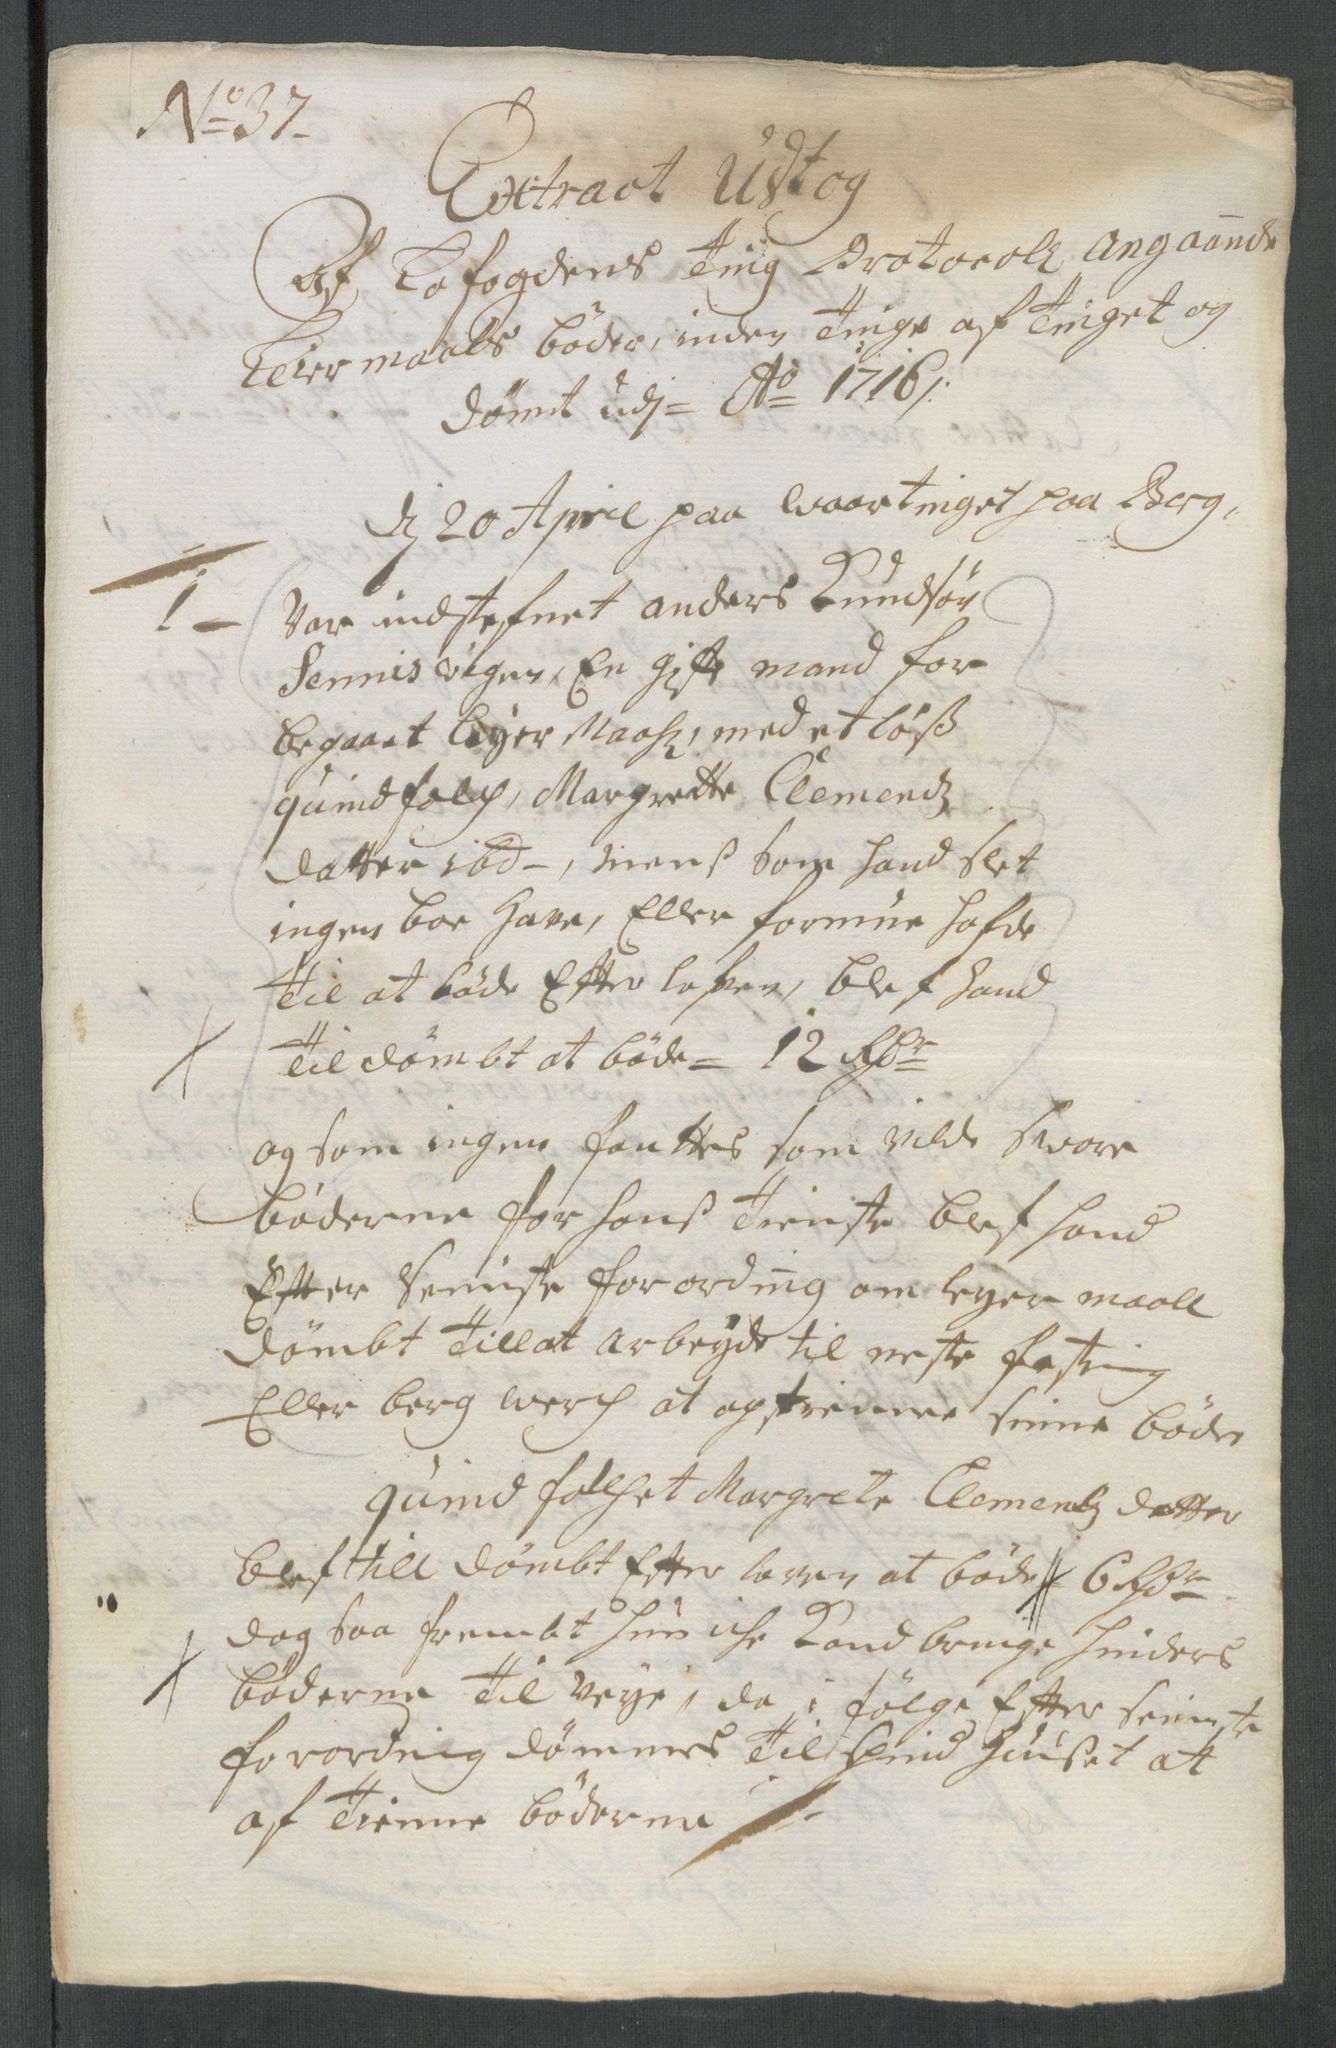 No 37
Extract Udtog
Af Fogdens Ting Protocoll angaaende
Leiermaals böder, inden Tinge af Tinget og
dömt udj Ao 1716/:
dj 20 April paa waartinget paa Berg,
1 Var indstefnet anders Knudsön
En gifft mand for
begaaet Leyer Maahl, med et löß
quindfolch, Margrette Clementz
datter ibd, mens som hand slet
ingen boe Have, Eller formue hafde
Til at böde Effter lofven, blef hand
Til dömbt at böde 12 Rdr
og som ingen fanttes som vilde svare
böderne for hans Tieniste blef hand
Effter Seniste forordning om leyer maall
dömbt Till at arbeyde til neste festing
Eller berg werch at aftienne sinne böder
quind folchet Margrete Clementz datter
blef till dömbt Effter loven at böde 6 Rdr
dog saa frembt hun iche Kand bringe hinders
böderne Til veye, da i fölge Effter seniste
forordning dömmes Til Spind Huuset at
af Tienne böderne